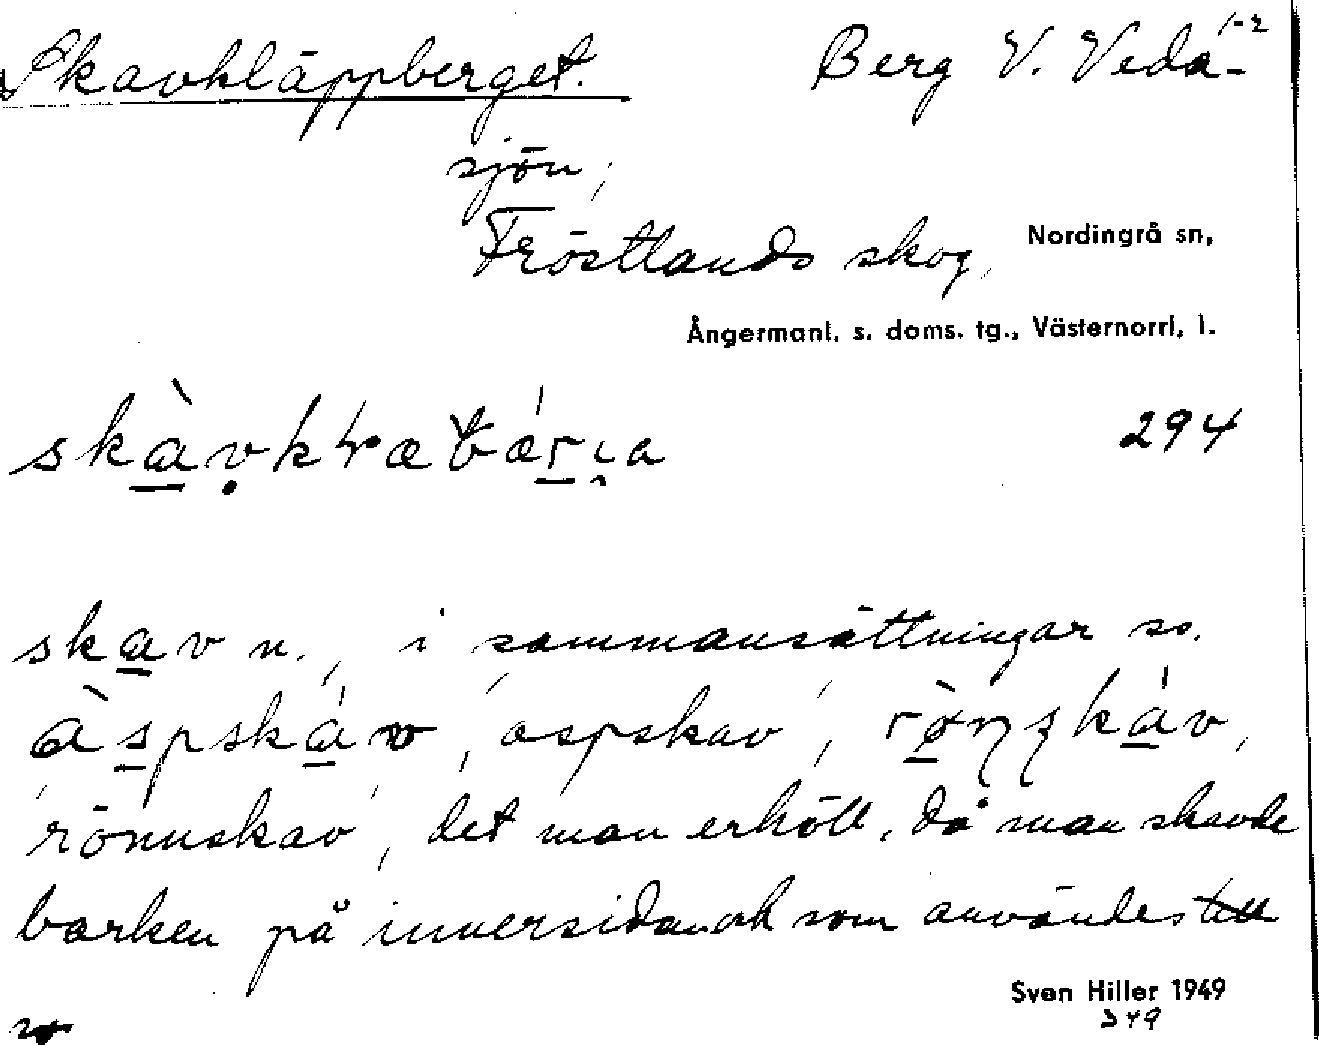 Skavkläppberget. Berg V. Vedå- 1-2
sjön,
Fröstlands skog, Nordingrå sn,
Ångermanl. s. doms. tg., Västernorrl. l.
294
skav n., i sammansättningar so.
àspskáv, 'aspskav', ròn̨skáv,
'rönnskav', det man erhöll, då man skavde
barken på innersidan och som användes till
Sven Hiller 1949